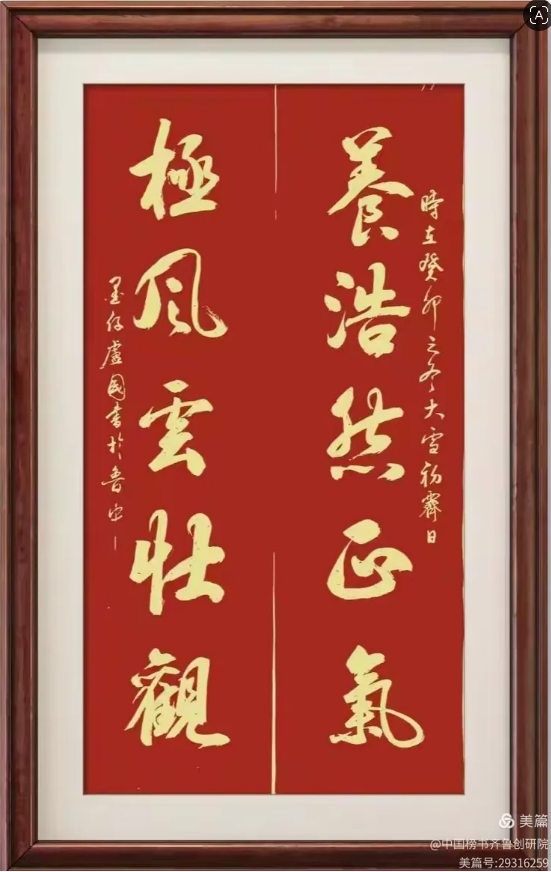 養浩然正氣
時在癸卯之冬大雪初霽日
極風雲壯觀
墨仔盧國書於魯
美篇
@中国榜书齐鲁创研院
美篇号:29316259